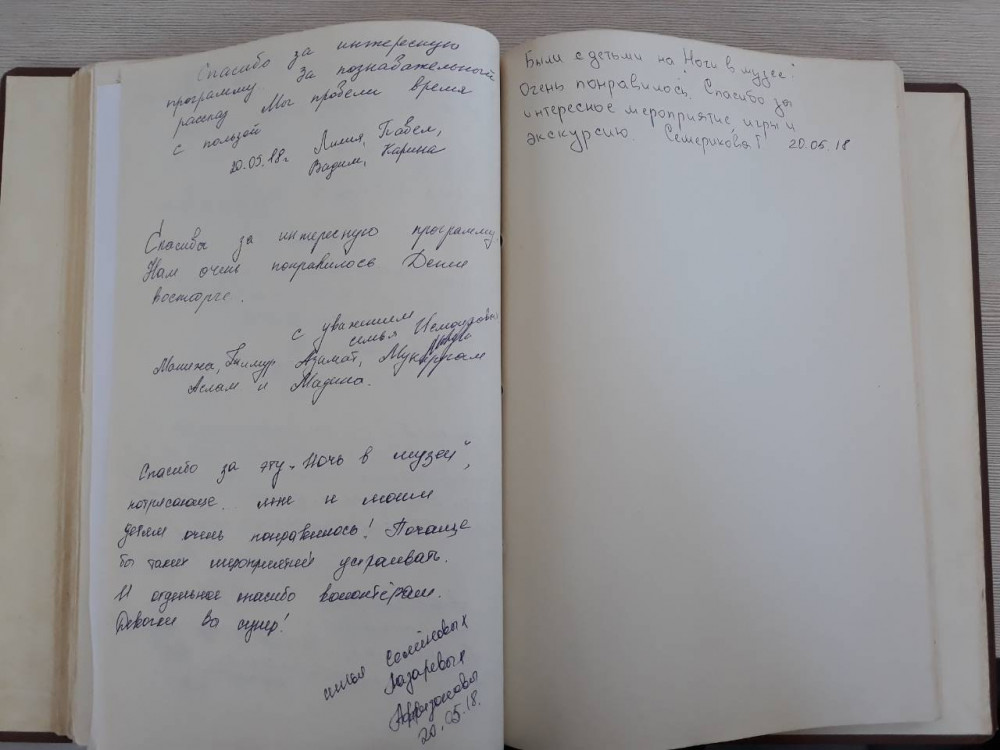 Спасибо за интересную
программу За познавательный
рассказ Мы провели время
с пользой
20.05.18г Лилия, Павел,
Вадим, Карина
Спасибо за интересную программу
Нам очень понравилось Дети
восторге.
с уважением
семья
Тимур Азимат,
Аслам и Мадина.
Спасибо за эту "Ночь в музей",
потрясающе. мне и моим
детям очень понравилось! Почаще
бы таких мероприятий устраивать.
И отдельное спасибо волонтёрам.
Девочки Вы супер!
семья Семёновых
Лазаревых
20.05.18.
Были с детьми на Ночи в музее!
Очень понравилось. Спасибо за
интересное мероприятие, игры и
экскурсию. Семерикова Г 20.05.18